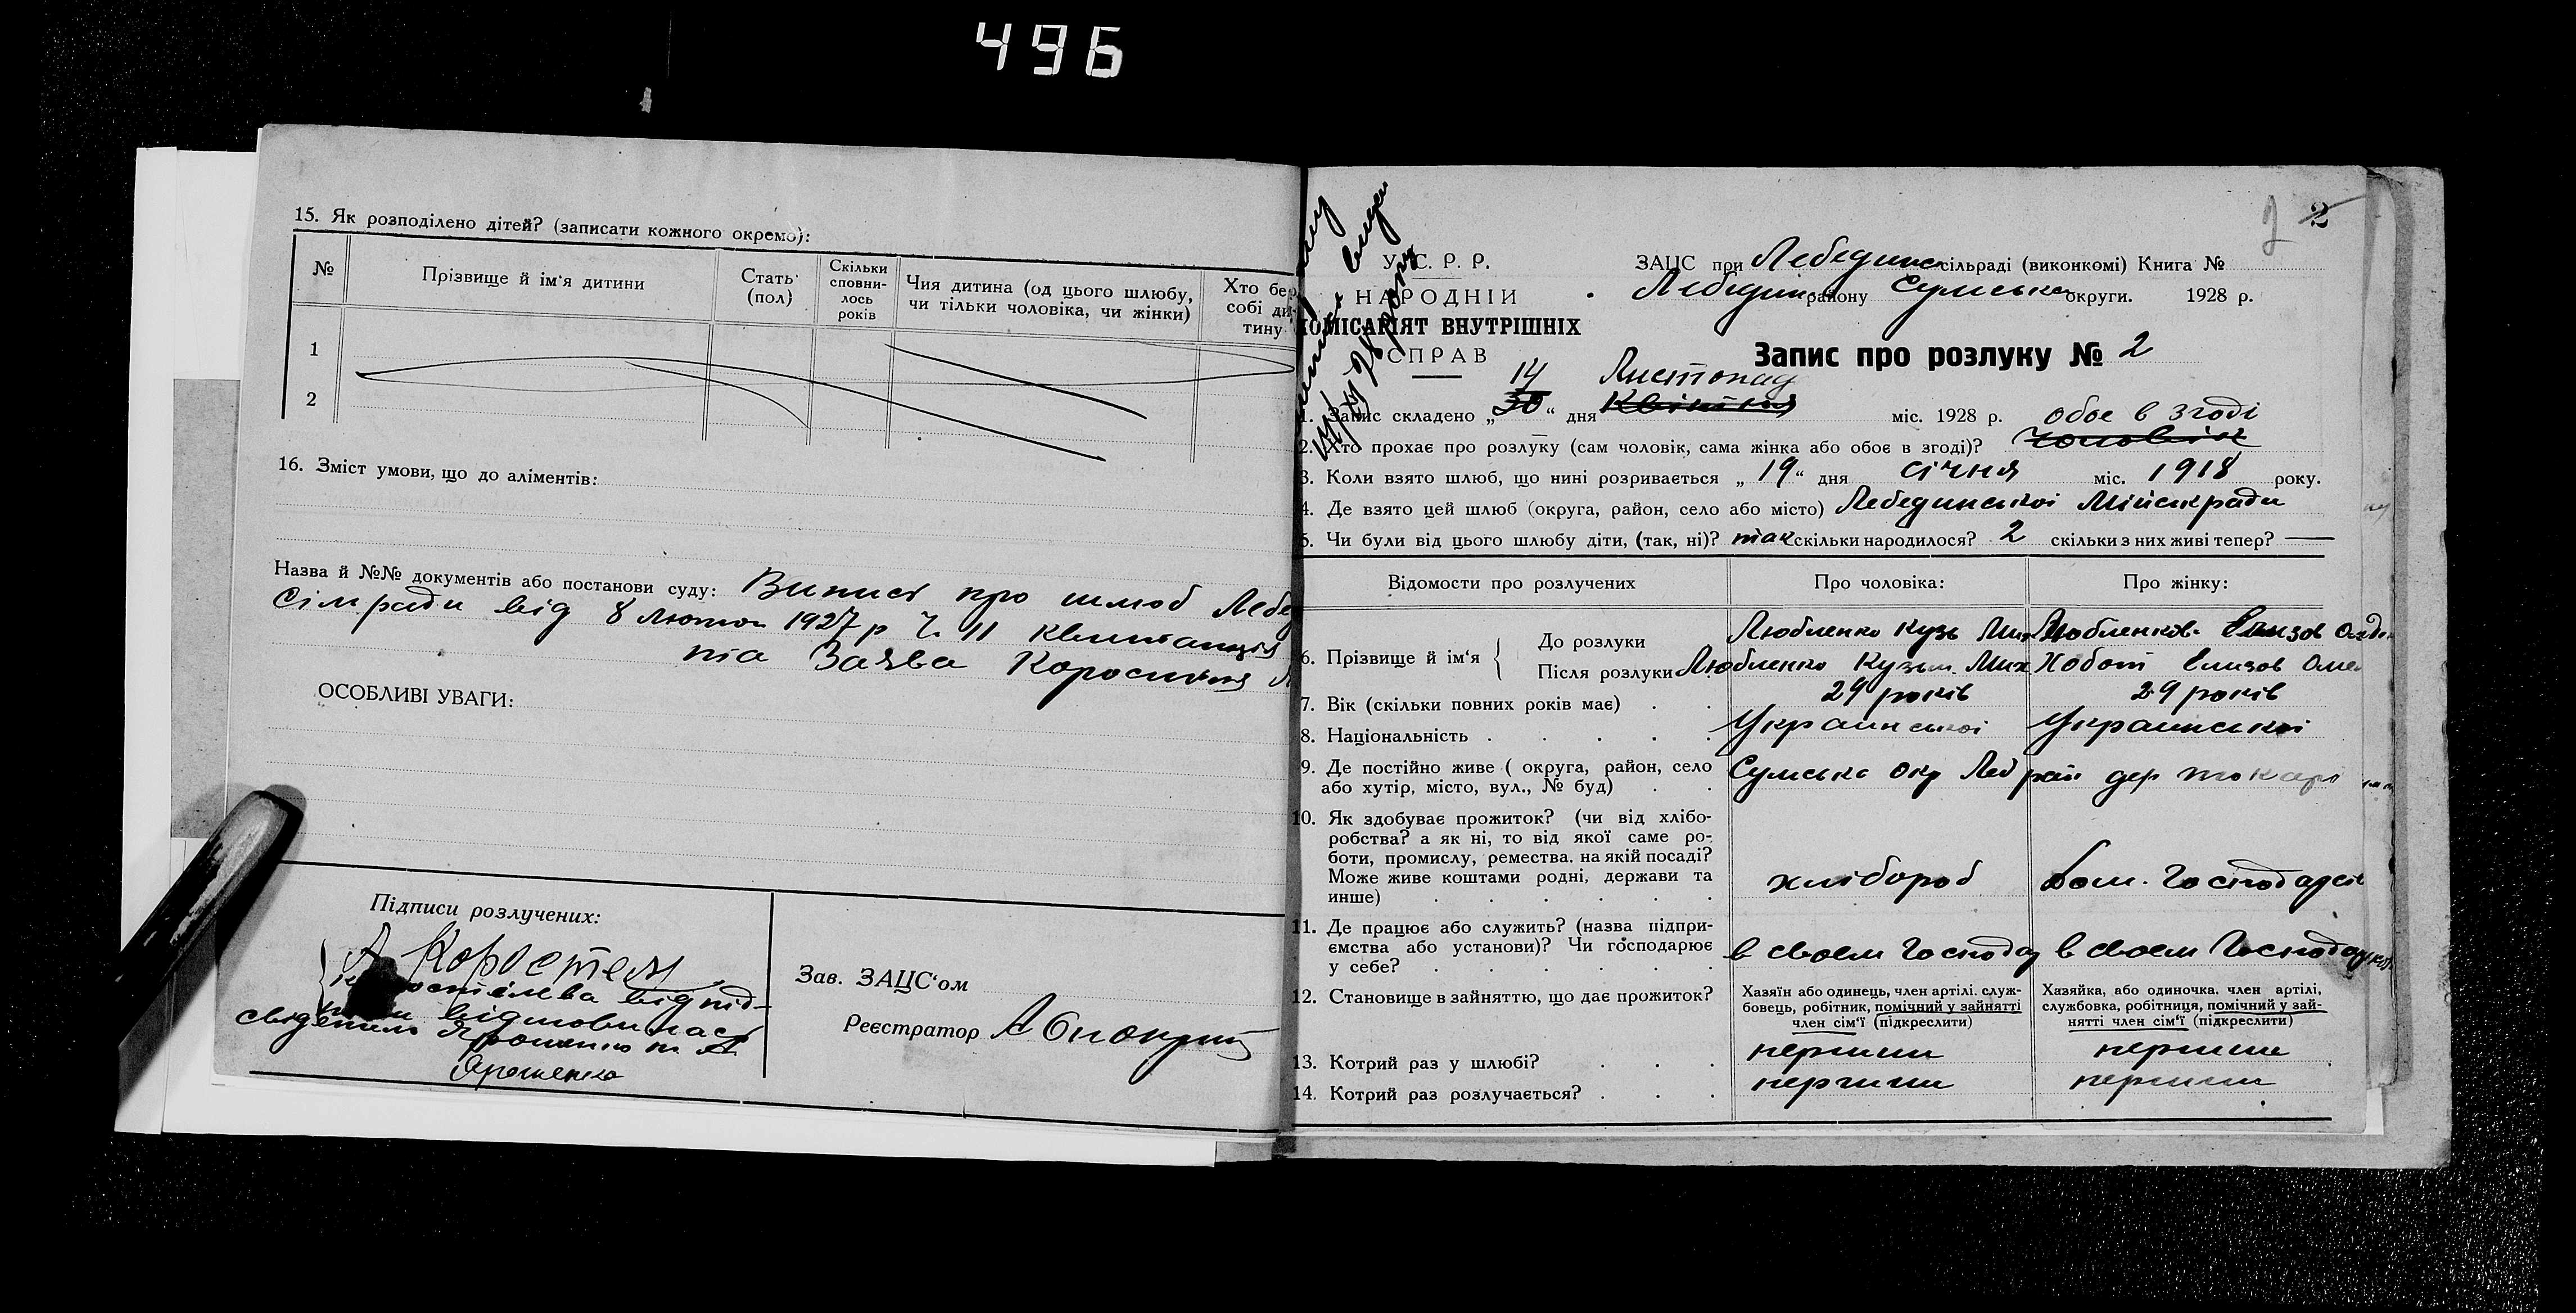 496
15. Як розподілено дітей? (записати кожного окремо):
№ Прізвище й ім'я дитини Стать (пол) Скільки сповни-лось років Чия дитина (од цього шлюбу, чи тільки чоловіка, чи жінки) Хто бер собі ди- тину
1
2
16. Зміст умови, що до аліментів:
Назва й №№ документів або постанови суду: Випись про шлюб Лебед
Сілради від 8 лютого 1927 р Ч. 11 квитанція
та Заява
ОСОБЛИВІ УВАГИ:
Підписи розлучених:
А Коростель
від під-
відмовилась
Ярошенко
Зав. ЗАЦС'ом
Реєстратор
2 2
У. С. Р. Р.
НАРОДНІЙ
КОМІСАРІЯТ ВНУТРІШНІХ
СПРАВ
ЗАЦС при Лебединс сільраді (виконкомі) Книга №
Лебедин району Сумська округи. 1928 р.
Запис про розлуку № 2
14 Листопад
1. Запис складено „30“ дня Квітня міс. 1928 р. обоє в згоді
2. Хто прохає про розлуку (сам чоловік, сама жінка або обоє в згоді)? чоловік
3. Коли взято шлюб, що нині розривається „19“ дня січня міс. 1918 року.
4. Де взято цей шлюб (округа, район, село або місто) Лебединської Міськради
5. Чи були від цього шлюбу діти, (так, ні)? так скільки народилося? 2 скільки з них живі тепер? —
Відомости про розлучених Про чоловіка: Про жінку:
6. Прізвище й ім'я { До розлуки Любленко Кузь Мих Любленкова Елизов
Після розлуки Любленко Кузьм. Мих Хобот Елизов Оме
7. Вік (скільки повних років має) 29 років 29 років
8. Національність Украинської Украинської
9. Де постійно живе ( округа, район, село Сумська окр Леб рай дер Токарі
або хутір, місто, вул., № буд)
10. Як здобуває прожиток? (чи від хлібо-
робства? а як ні, то від якої саме ро-
боти, промислу, ремества. на якій посаді?
Може живе коштами родні, держави та
инше) хлібороб дом. Господарств
11. Де працює або служить? (назва підпри-
ємства або установи)? Чи господарює в своєм Господ в своєм Господар
у себе?
12. Становище в зайняттю, що дає прожиток? Хазяїн або одинець, член артілі. служ- Хазяйка, або одиночка. член артілі,
бовець, робітник, помічний у зайнятті службовка, робітниця, помічний у зай-
член сім'ї (підкреслити) нятті член сім'ї (підкреслити)
13. Котрий раз у шлюбі? перший перший
14. Котрий раз розлучається? перший перший